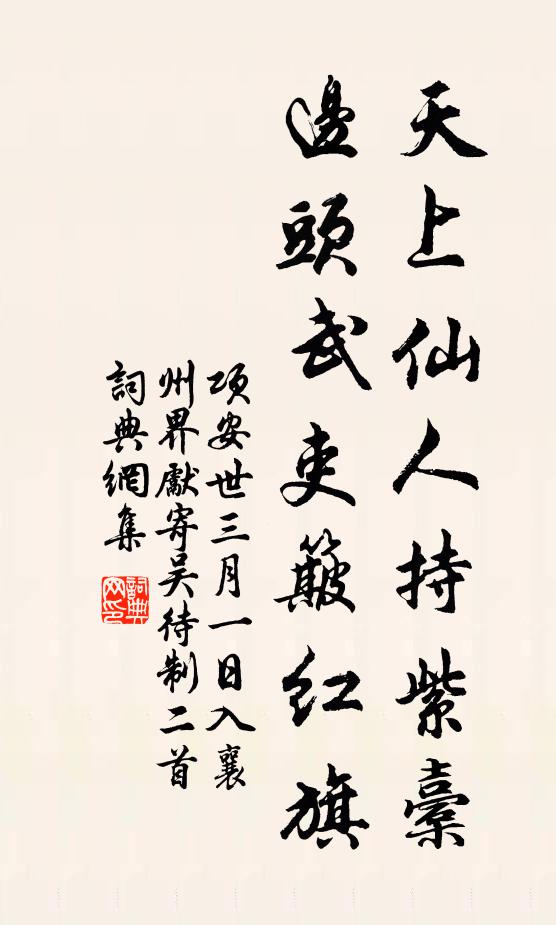 天上仙人持紫橐
邊頭武吏簸紅旗
項安世三月一日入襄
州界獻寄吴待制二首
詞典網集
詞典網印